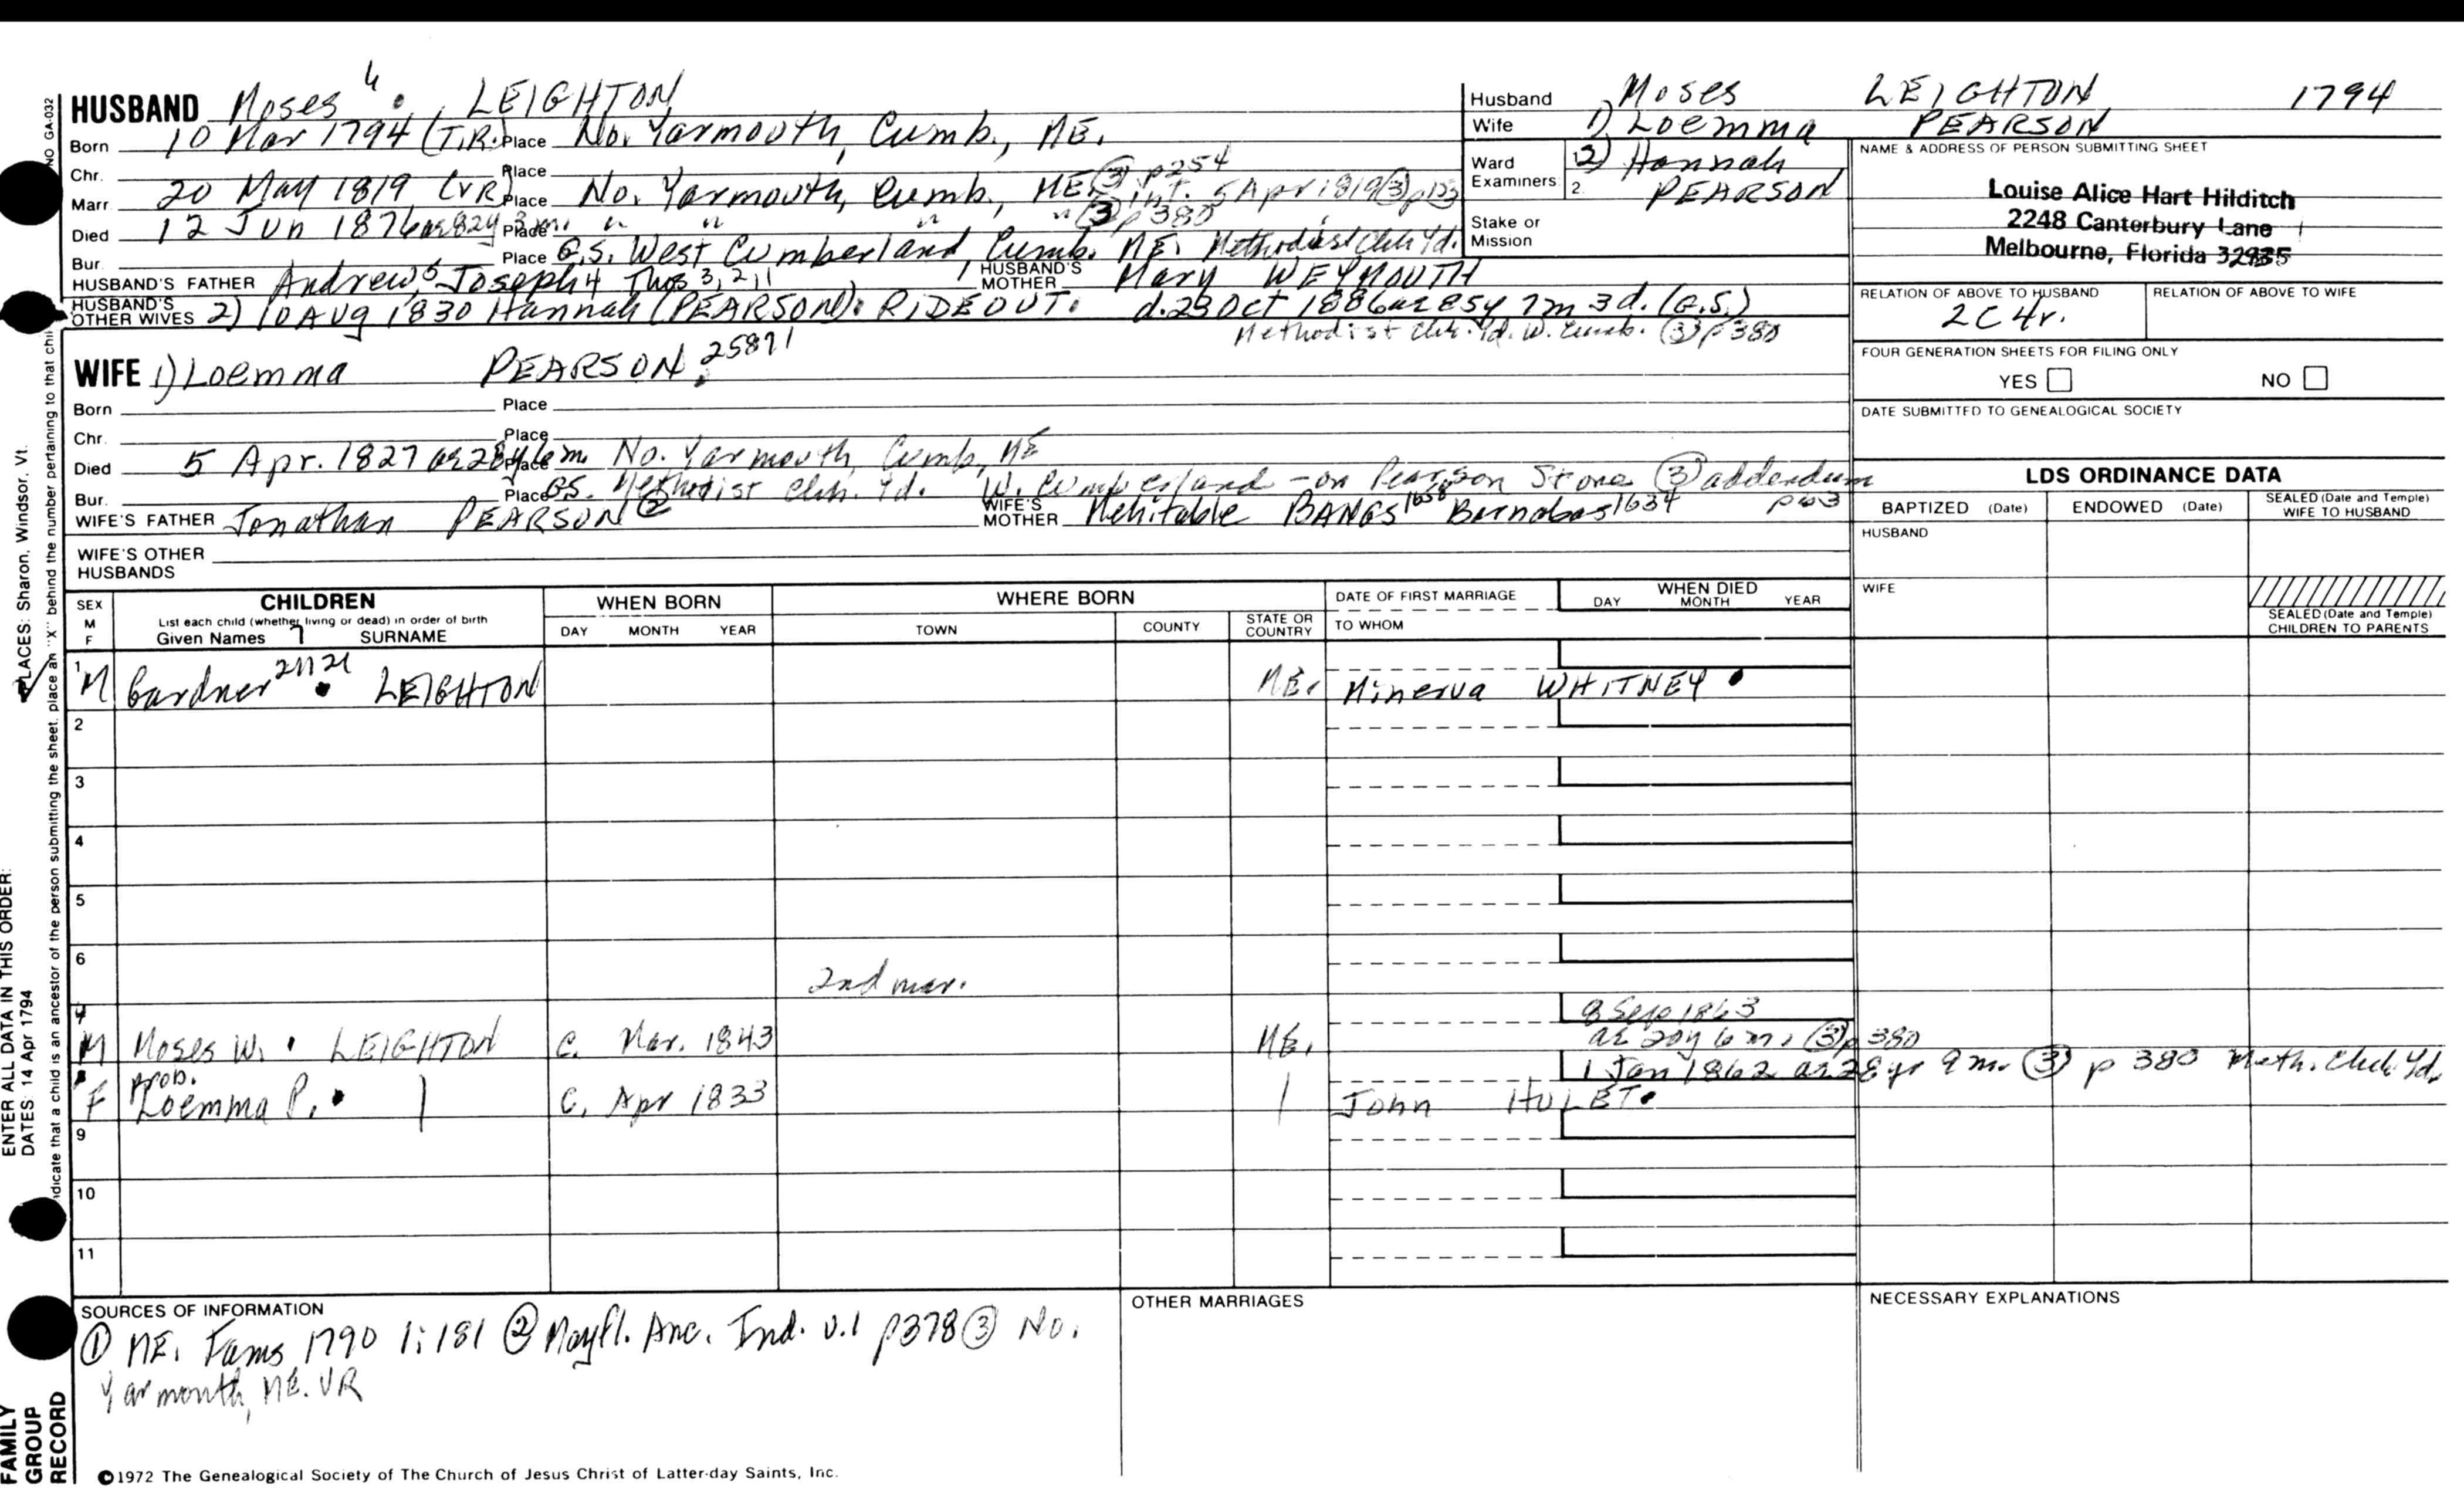 HUSBAND Moses 4 LEIGHTON
Born 10 Mar 1794 (T.R.) Place No. Yarmouth, Cumb., ME.
Chr. Place
Marr 20 May 1819 (VR) Place No. Yarmouth, Cumb., ME. (3) p254 int. 5 Apr 1819 (3) p123
Died 12 Jun 1876 ae 82y 3m. Place " " " " (3) p380
Bur. Place G.S. West Cumberland, Cumb. ME. Methodist Chh Yd.
HUSBAND'S FATHER Andrew 5, Joseph 4 Thos 3,2,1 HUSBAND'S MOTHER Mary WEYMOUTH
HUSBAND'S OTHER WIVES 2) 10 Aug 1830 Hannah (PEARSON) RIDEOUT. d. 23 Oct 1886 ae 85y 7m 3d. (G.S.)
Methodist Chh. Yd. W. Cumb. (3) p380
WIFE 1) Loemma PEARSON 25871
Born Place
Chr. Place
Died 5 Apr. 1827 ae 28y 6m Place No. Yarmouth, Cumb, ME
Bur. Place G.S. Methodist Chh. Yd. W. Cumberland - on Pearson Stone (3) addendum
WIFE'S FATHER Jonathan PEARSON (2) WIFE'S MOTHER Mehitable BANGS 1658 Barnabas 1634 p63
WIFE'S OTHER HUSBANDS
Husband Moses LEIGHTON 1794
Wife 1) Loemma PEARSON
Ward Examiners: 2) Hannah
2. PEARSON
Stake or Mission
NAME & ADDRESS OF PERSON SUBMITTING SHEET
Louise Alice Hart Hilditch
2248 Canterbury Lane
Melbourne, Florida 32935
RELATION OF ABOVE TO HUSBAND RELATION OF ABOVE TO WIFE
2C4r.
FOUR GENERATION SHEETS FOR FILING ONLY
YES NO
DATE SUBMITTED TO GENEALOGICAL SOCIETY
LDS ORDINANCE DATA
BAPTIZED (Date) ENDOWED (Date) SEALED (Date and Temple) WIFE TO HUSBAND
HUSBAND
WIFE
SEALED (Date and Temple) CHILDREN TO PARENTS
SEX M F CHILDREN WHEN BORN WHERE BORN DATE OF FIRST MARRIAGE WHEN DIED
List each child (whether living or dead) in order of birth
Given Names 7 SURNAME DAY MONTH YEAR TOWN COUNTY STATE OR COUNTRY TO WHOM DAY MONTH YEAR
1 M Gardner LEIGHTON ME. Minerva WHITNEY
2
3
4
5
6
2nd mar.
8 Sep 1863
M Moses W. LEIGHTON c. Mar. 1843 ME. ae 20y 6m. (3) p 380
1 Jan 1862 ae 28 yr 9 m. (3) p 380 Meth. Chh Yd.
prob.
F Loemma P. c. Apr 1833 John HULET
9
10
11
SOURCES OF INFORMATION
(1) ME. Fams 1790 1:181 (2) Mayfl. Anc. Ind. v.1 p378 (3) No.
Yarmouth, ME. VR
OTHER MARRIAGES
NECESSARY EXPLANATIONS
©1972 The Genealogical Society of The Church of Jesus Christ of Latter-day Saints, Inc.
FAMILY
GROUP
RECORD
ENTER ALL DATA IN THIS ORDER:
DATES: 14 Apr 1794
PLACES: Sharon, Windsor, Vt.
indicate that a child is an ancestor of the person submitting the sheet, place an "X" behind the number pertaining to that chi
NO GA-032